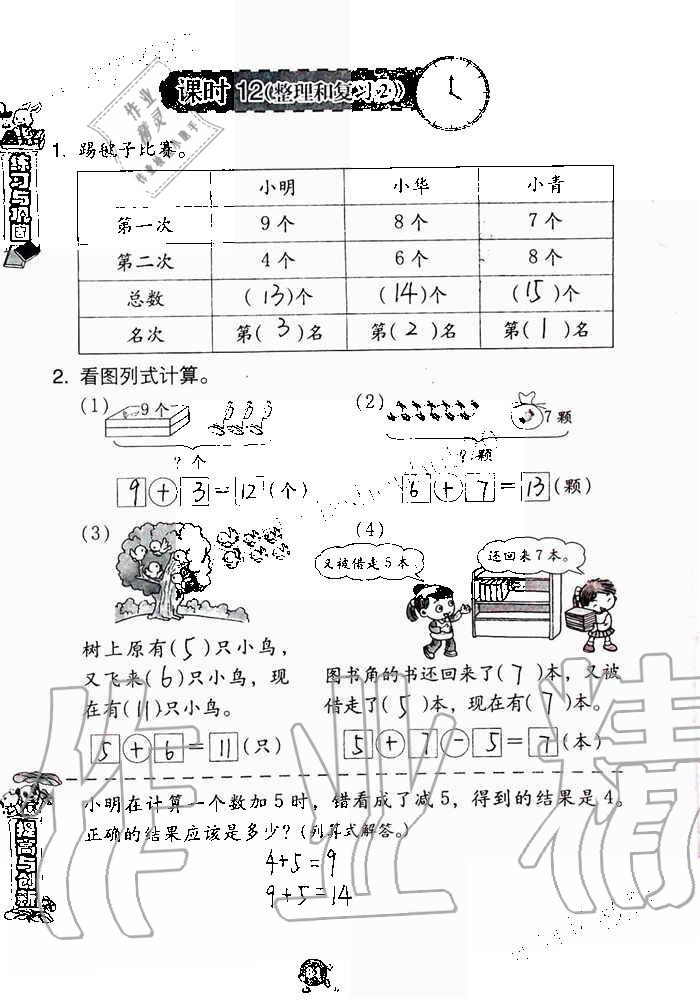 课时12(整理和复习2)
练习与巩固
1. 踢毽子比赛。
小明 小华 小青
第一次 9个 8个 7个
第二次 4个 6个 8个
总数 (13)个 (14)个 (15)个
名次 第(3)名 第(2)名 第(1)名
2. 看图列式计算。
(1) 9个
?个
9+3=12(个)
(2) 7颗
?颗
6+7=13(颗)
(3)
树上原有(5)只小鸟,
又飞来(6)只小鸟,现
在有(11)只小鸟。
5+6=11(只)
(4)
又被借走5本。
还回来7本。
图书角的书还回来了(7)本,又被
借走了(5)本,现在有(7)本。
5+7-5=7(本)
提高与创新
小明在计算一个数加5时,错看成了减5,得到的结果是4。
正确的结果应该是多少?(列算式解答。)
4+5=9
9+5=14
作业精
作业精灵